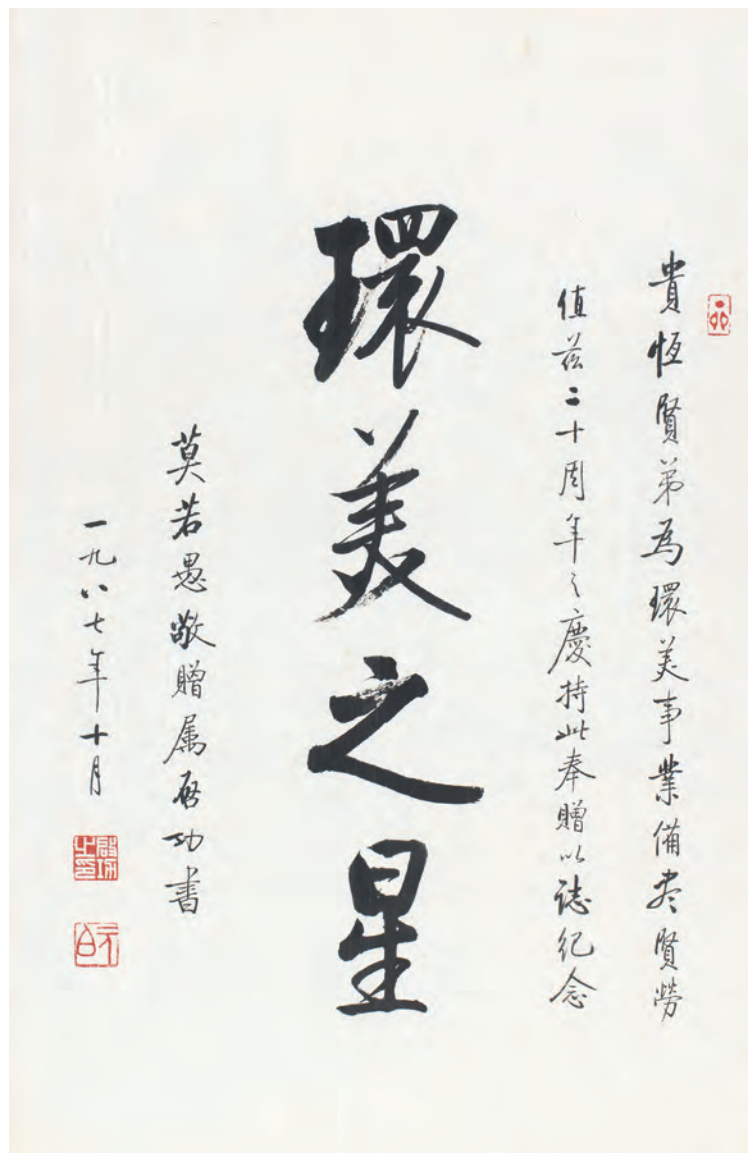 貴恆賢弟為環美事業備盡賢勞
值茲二十周年之慶持此奉贈以誌紀念
環美之星
莫若愚敬贈属啓功書
一九八七年十月
啟功之印
元白